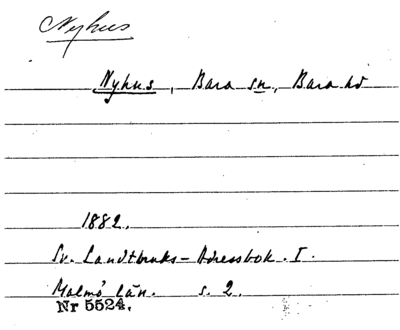 Nyhus
Nyhus, Bara sn, Bara hd
1882.
Sv. Landtbruks-Adressbok. I.
Malmö län. s. 2.
Nr 5524.